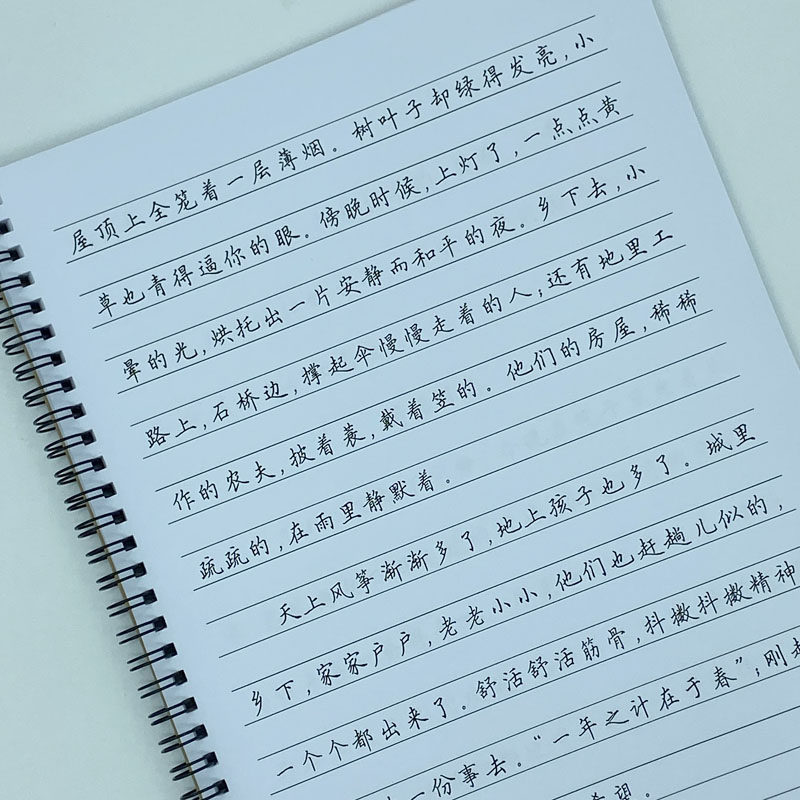 屋顶上全笼着一层薄烟。树叶子却绿得发亮,小
草也青得逼你的眼。傍晚时候,上灯了,一点点黄
晕的光,烘托出一片安静而和平的夜。乡下去,小
路上,石桥边,撑起伞慢慢走着的人;还有地里工
作的农夫,披着蓑,戴着笠的。他们的房屋,稀稀
疏疏的,在雨里静默着。
天上风筝渐渐多了,地上孩子也多了。城里
乡下,家家户户,老老小小,他们也赶趟儿似的,
一个个都出来了。舒活舒活筋骨,抖擞抖擞精神
一份事去。“一年之计在于春”;刚
希望。